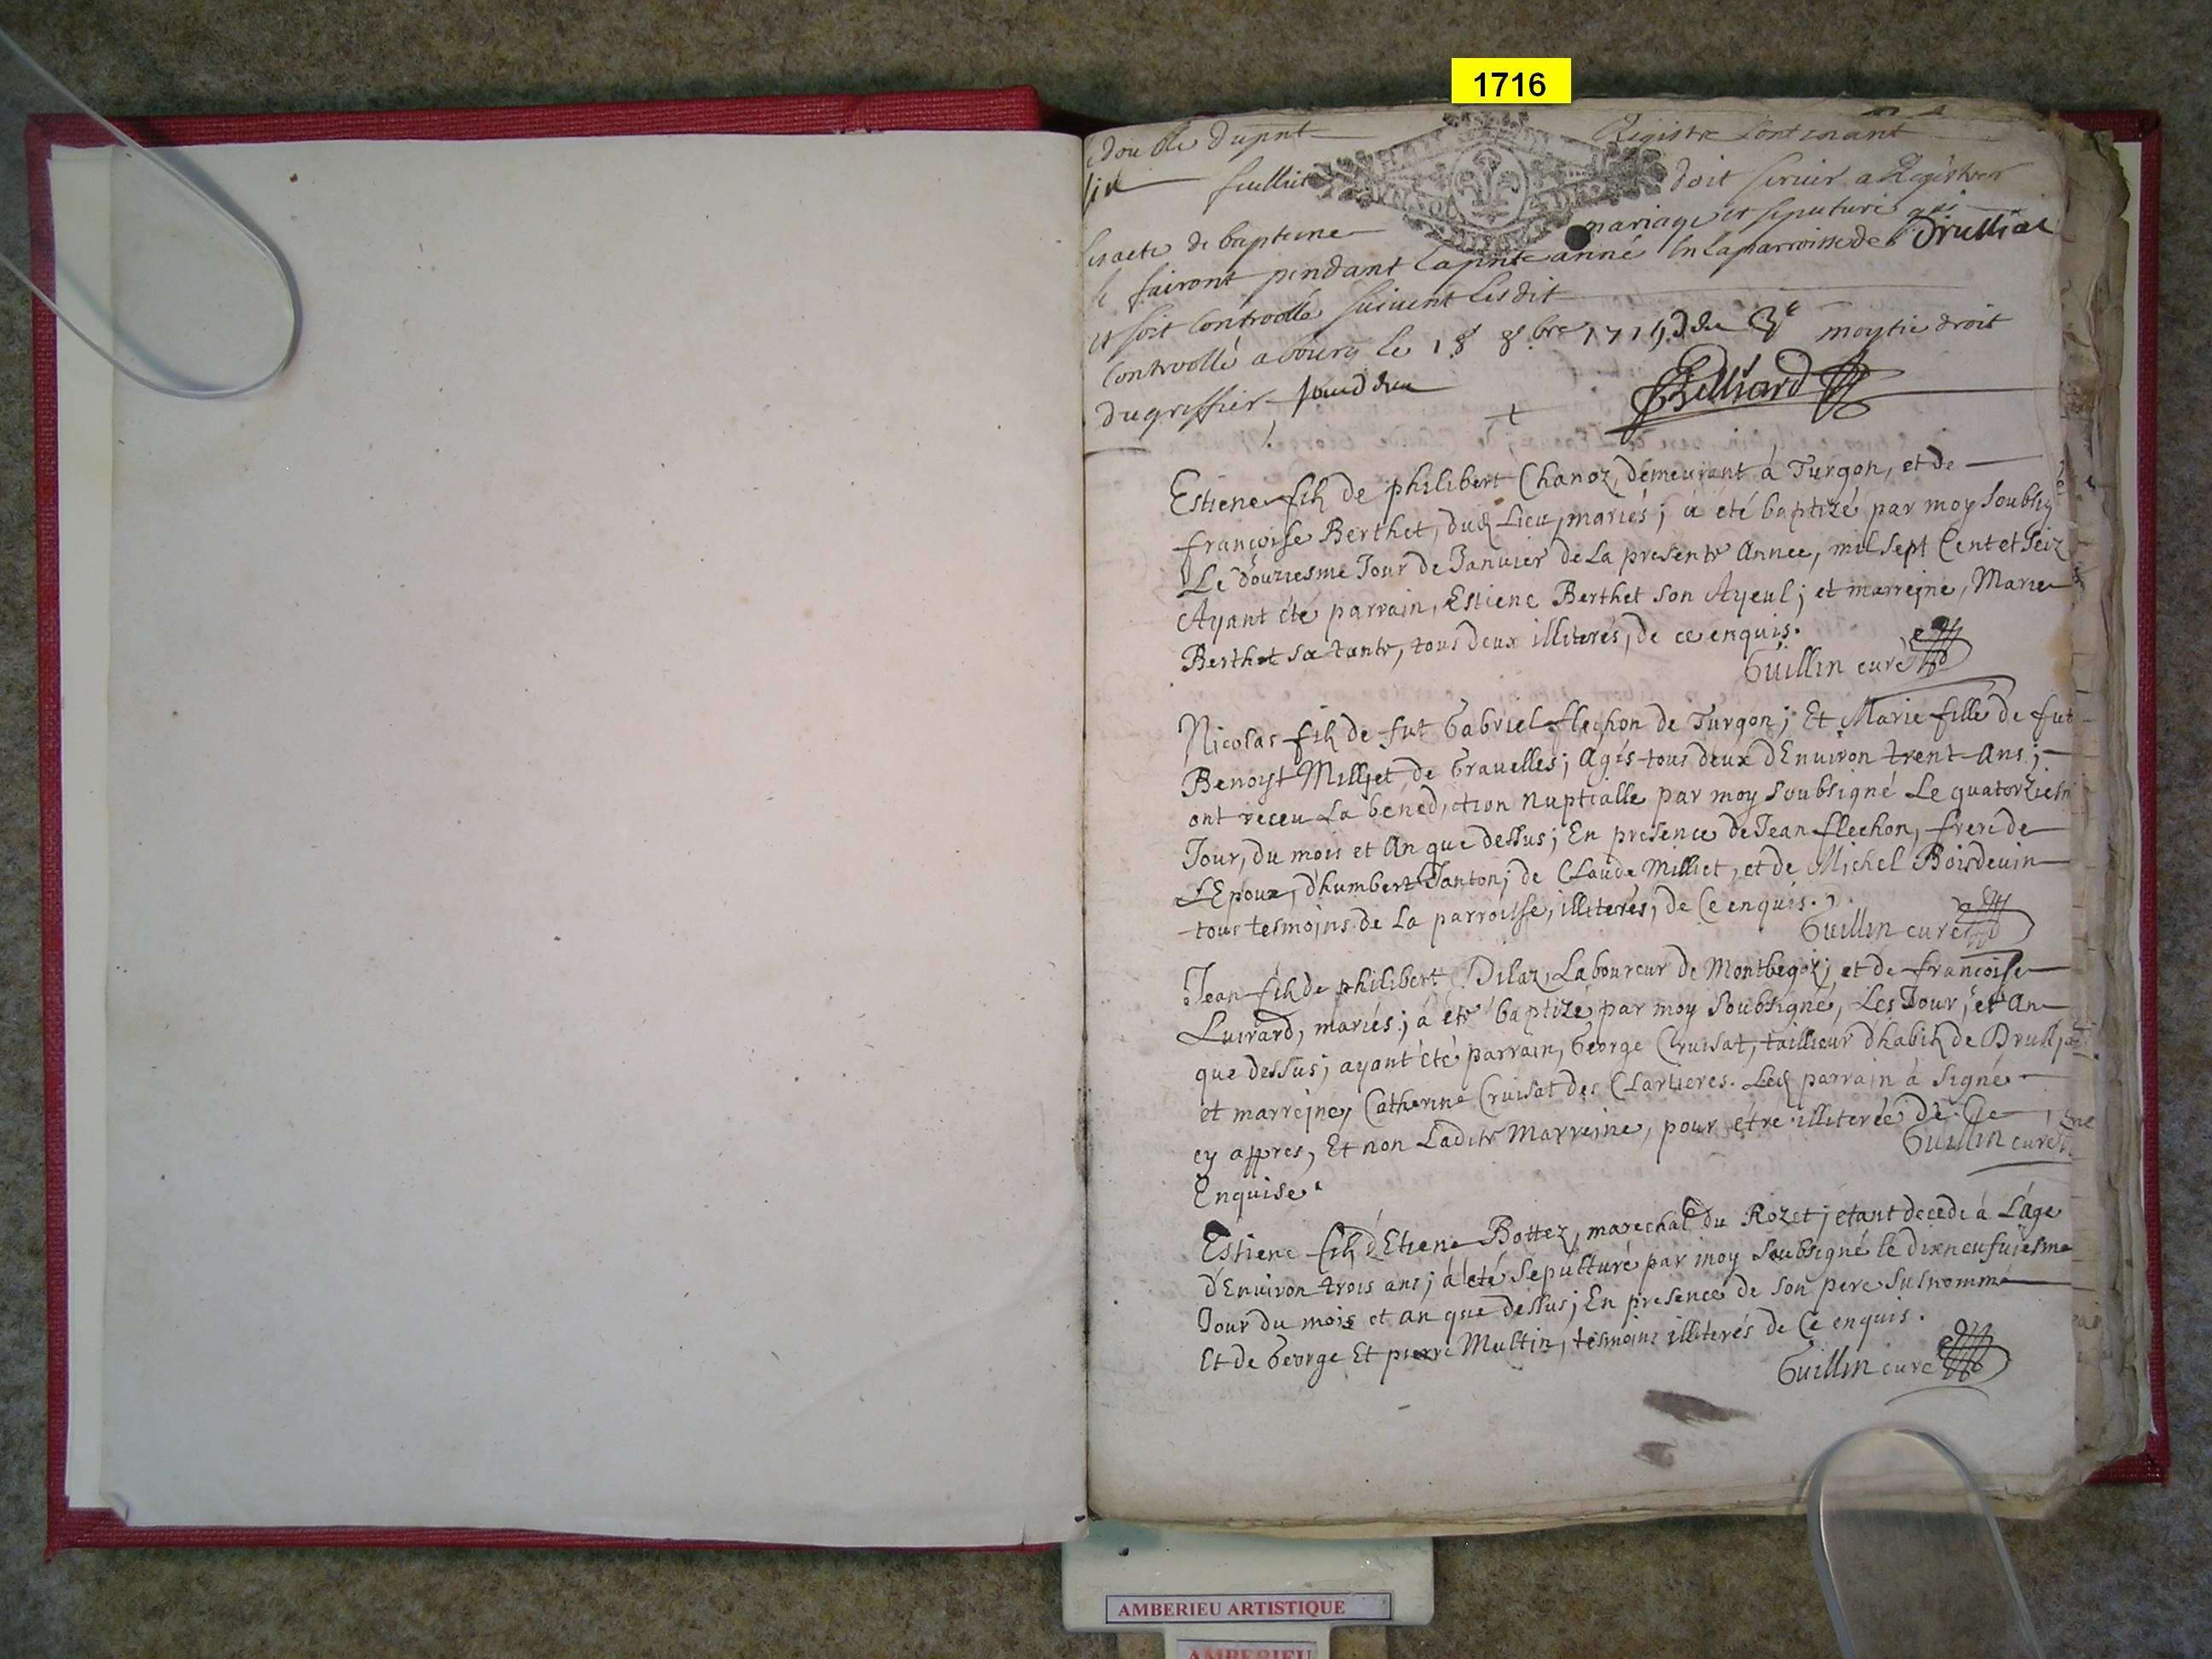 1716
double du pnt Registre Contenant
feuillits doit servir a Régistrer
les acte de bapteme mariage et sepulture qui
se fairont pendant la pnte anné En la parroisse de Drullial
et soit Controolle suivent Lesdit
Controollé a bourg le 18 8bre 1715 moytié droit
du greffier
Estiene fils de philibert Chanoz, demeurant à Turgon, et de
françoise Berthet, dud Lieu, mariés; a été baptizé par moy soubsig
Le douziesme Jour de Januier de La presente Annee, mil sept Cent et seiz
Ayant été parrain, Estiene Berthet son Ayeul; et marreine, Marie
Berthet sa tante, tous deux illiterés, de ce enquis.
Guillin curé
Nicolas fils de fut Gabriel flechon de Turgon; Et Marie fille de fut
Benoist Milliet de Grauelles; Agés tous deux dEnuiron trent Ans;
ont receu La benediction Nuptialle par moy soubsigné Le quatorziesm
Jour, du mois et An que dessus; En presence de Jean flechon, frere de
LEpoux, d'humbert Janton; de Claude Milliet, et de Michel Boisdeuin
tous tesmoins de La parroisse, illiterés, de Ce enquis.
Guillin curé
Jean fils de philibert Dilaz, Laboureur de Montbegoz; et de françoise
Luirard, mariés; a été baptizé par moy Soubsigné, Les Jour, et An
que dessus; ayant été parrain, George Cruisat, tailleur dhabits de Drulliat
et marreine, Catherine Cruisat des Clartieres. Led parrain à Signé
cy appres, Et non Ladite Marreine, pour être illiterée de Ce
Guillin curé
Enquise.
Estiene fils d'Etiene Bottez, marechal du Rozet; étant decedé à L'age
d'Enuiron trois ans; a été Sepulturé par moy Soubsigné le dixneufuiesme
Jour du mois et an que dessus; En presence de son pere susnommé
Et de George Et pierre Multin, tesmoins illiterés de Ce enquis.
Guillin curé
AMBERIEU ARTISTIQUE
AMBERIEU